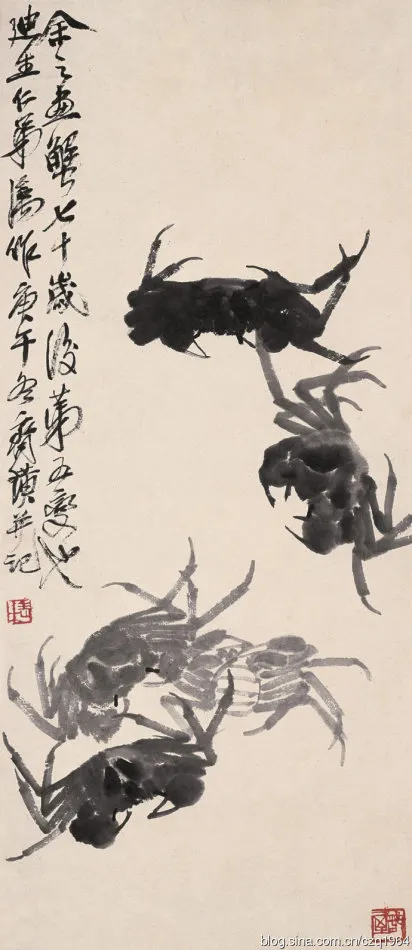 余之画蟹七十岁后第五变也
廸生仁弟法作庚午冬齐璜并记
blog.sina.com.cn/czq1964